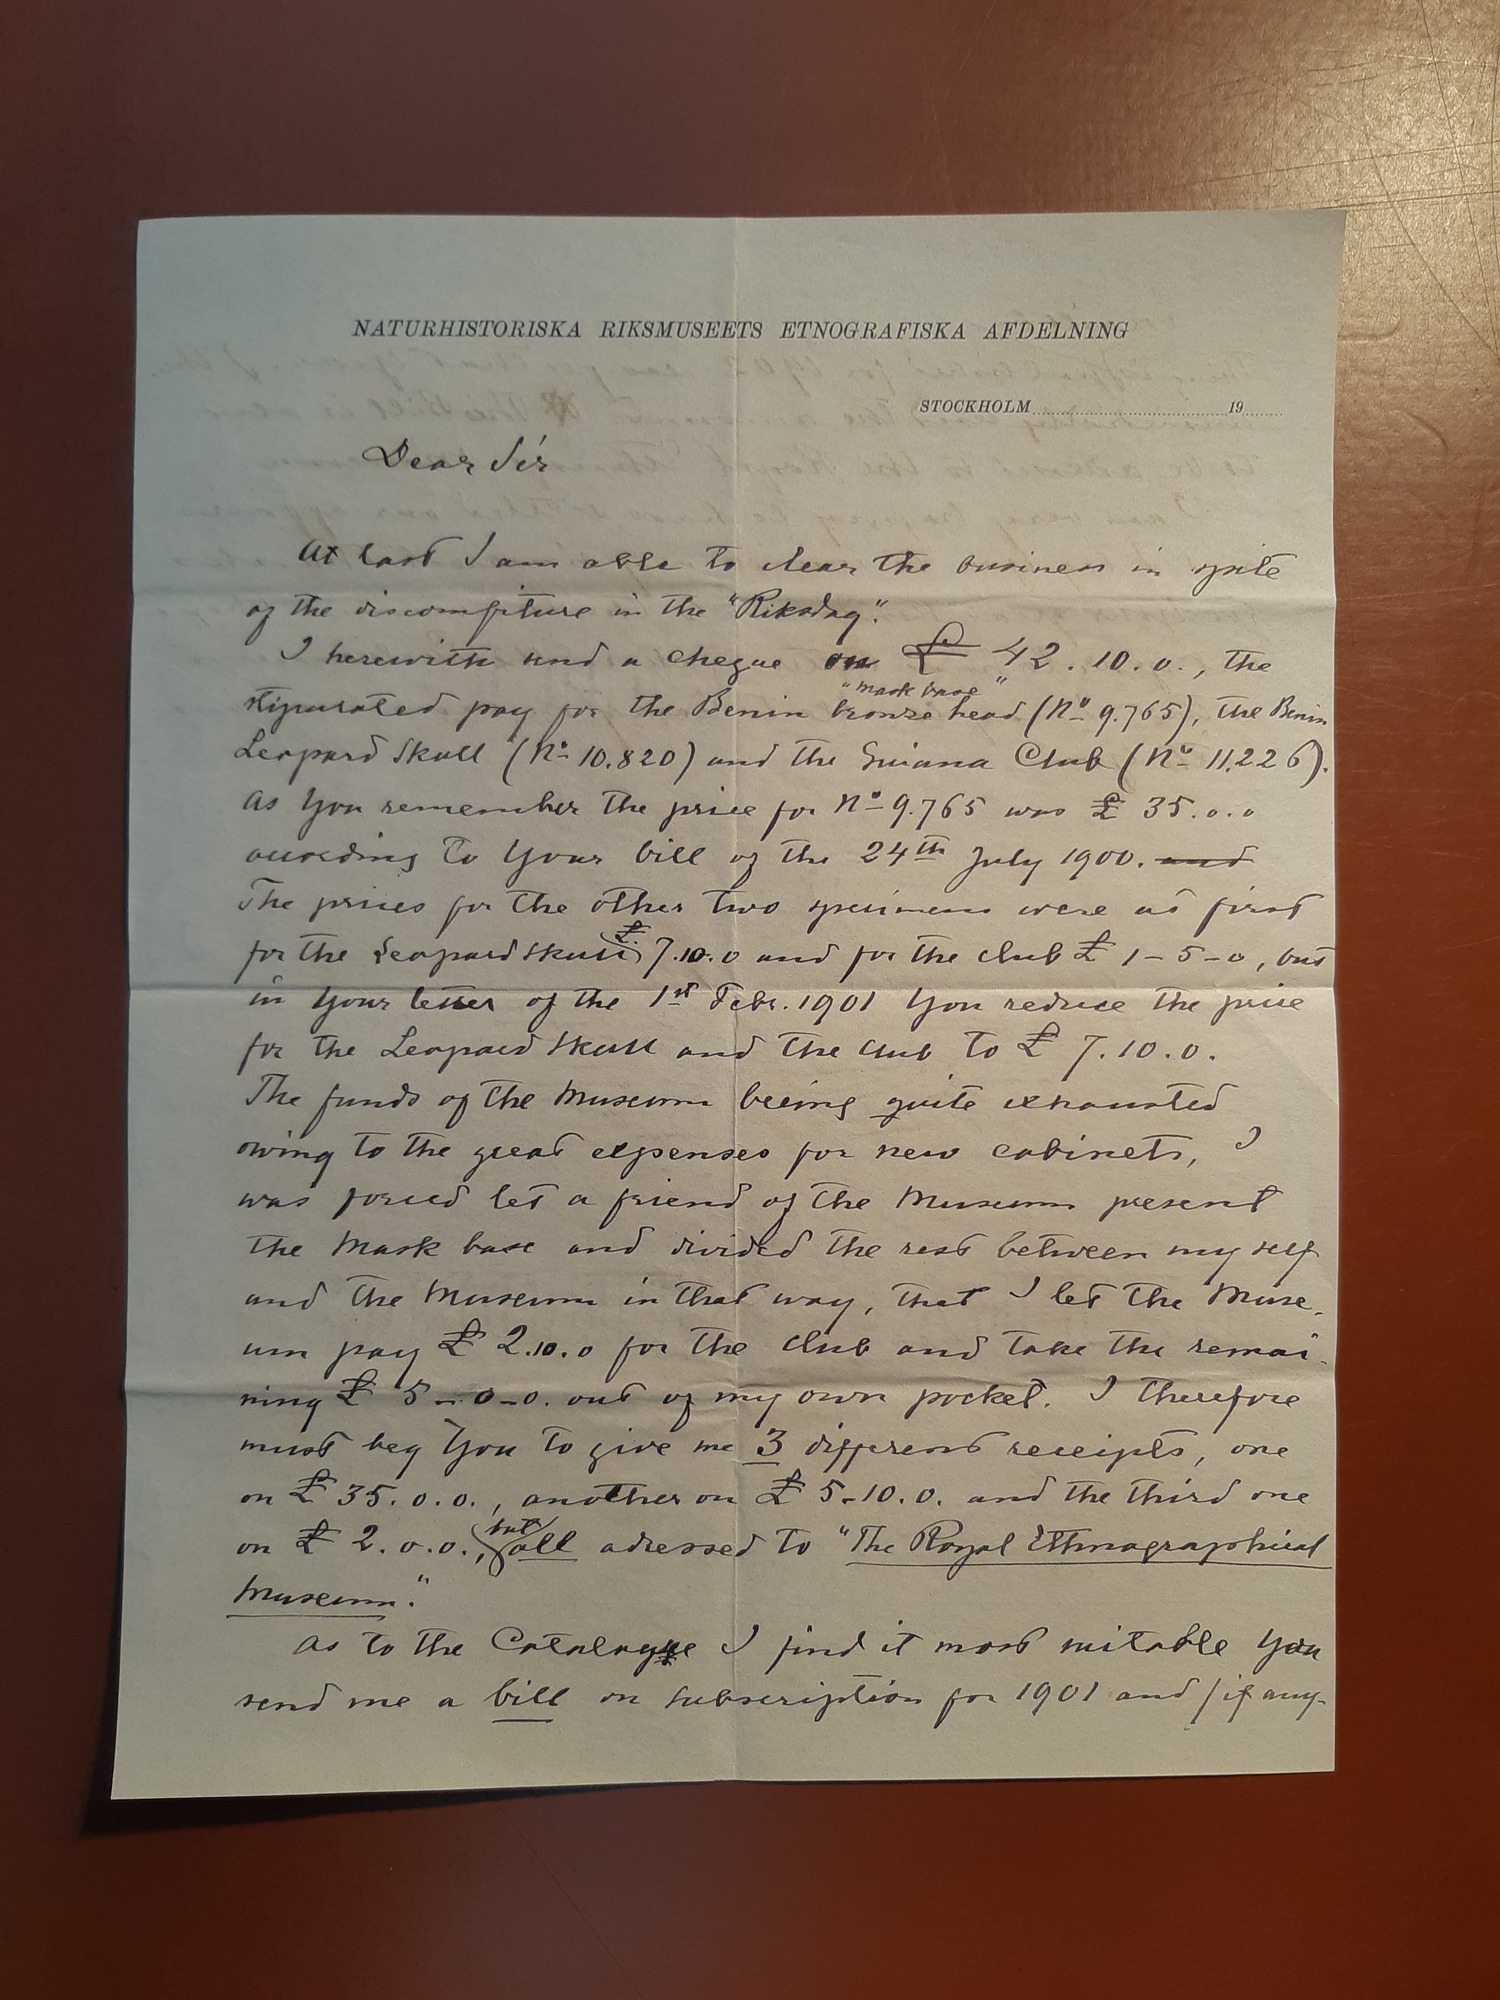 NATURHISTORISKA RIKSMUSEETS ETNOGRAFISKA AFDELNING
STOCKHOLM 19
Dear Sir
At last I am able to clear the business in spite
of the discomfiture in the "Riksdag".
I herewith send a cheque on £ 42.10.0., the
"mask base"
stipurated pay for the Benin bronze head (No 9.765), the Benin
Leopard Skull (No 10.820) and the Guiana Club (No 11.226).
As You remember the price for No 9.765 was £ 35.0.0
according to Your bill of the 24th July 1900. and
The prices for the other two specimens were at first
for the Leopard Skull £ 7.10.0 and for the club £ 1-5-0, but
in Your letter of the 1st Febr. 1901 You reduce the price
for the Leopard Skull and the Club to £ 7.10.0.
The funds of the Museum beeing quite exhausted
owing to the great expenses for new cabinets, I
was forced let a friend of the Museum present
the Mask base and divided the rest between my self
and the Museum in that way, that I let the Muse-
um pay £ 2.10.0 for the Club and take the remai-
ning £ 5-0-0. out of my own pocket. I therefore
must beg You to give me 3 different receipts, one
on £ 35.0.0., another on £ 5-10.0. and the third one
on £ 2.0.0., but all adressed to "The Royal Ethnographical
Museum".
As to the Catalogue I find it most suitable You
send me a bill on subscription for 1901 and (if any-